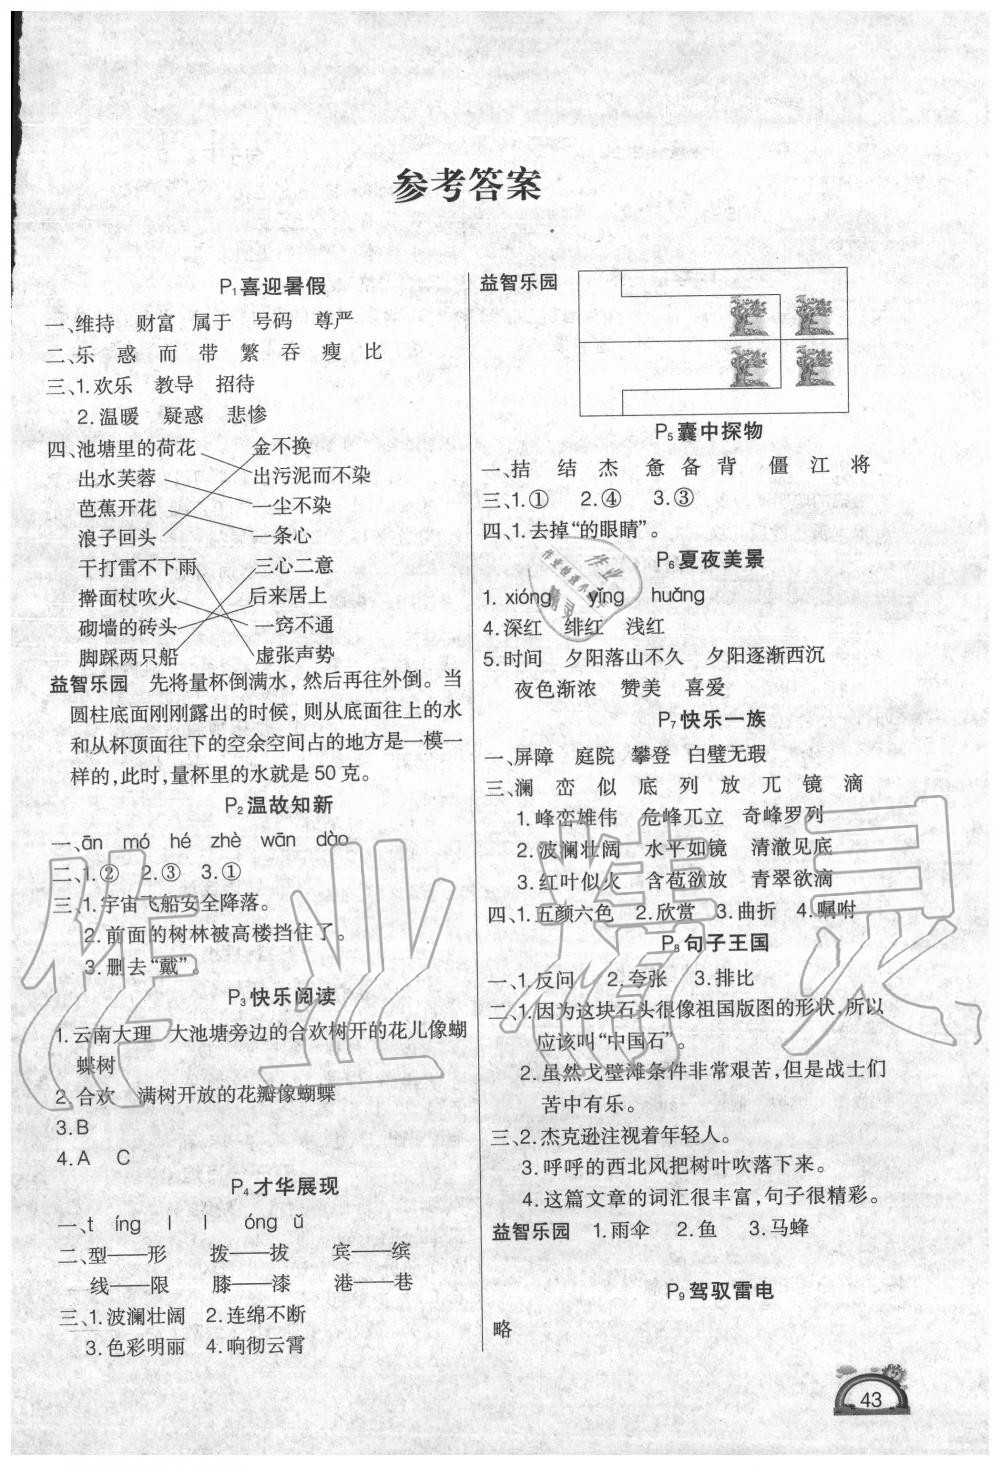 参考答案
P1喜迎暑假
一、维持 财富 属于 号码 尊严
二、乐 惑 而 带 繁 吞 瘦 比
三、1.欢乐 教导 招待
2.温暖 疑惑 悲惨
四、池塘里的荷花 金不换
出水芙蓉 出污泥而不染
芭蕉开花 一尘不染
浪子回头 一条心
干打雷不下雨 三心二意
擀面杖吹火 后来居上
砌墙的砖头 一窍不通
脚踩两只船 虚张声势
益智乐园 先将量杯倒满水,然后再往外倒。当
圆柱底面刚刚露出的时候,则从底面往上的水
和从杯顶面往下的空余空间占的地方是一模一
样的,此时,量杯里的水就是50克。
P2温故知新
一、ān mó hé zhè wān dào
二、1.② 2.③ 3.①
三、1.宇宙飞船安全降落。
2.前面的树林被高楼挡住了。
3.删去“戴”。
P3快乐阅读
1.云南大理 大池塘旁边的合欢树开的花儿像蝴
蝶树
2.合欢 满树开放的花瓣像蝴蝶
3.B
4.A C
P4才华展现
一、t íng l l óng ǔ
二、型——形 拨——拔 宾——缤
线——限 膝——漆 港——巷
三、1.波澜壮阔 2.连绵不断
3.色彩明丽 4.响彻云霄
益智乐园
P5囊中探物
一、拮 结 杰 惫 备 背 僵 江 将
三、1.① 2.④ 3.③
四、1.去掉“的眼睛”。
P6夏夜美景
1.xióng yíng huǎng
4.深红 绯红 浅红
5.时间 夕阳落山不久 夕阳逐渐西沉
夜色渐浓 赞美 喜爱
P7快乐一族
一、屏障 庭院 攀登 白璧无瑕
三、澜 峦 似 底 列 放 兀 镜 滴
1.峰峦雄伟 危峰兀立 奇峰罗列
2.波澜壮阔 水平如镜 清澈见底
3.红叶似火 含苞欲放 青翠欲滴
四、1.五颜六色 2.欣赏 3.曲折 4.嘱咐
P8句子王国
一、1.反问 2.夸张 3.排比
二、1.因为这块石头很像祖国版图的形状,所以
应该叫“中国石”。
2.虽然戈壁滩条件非常艰苦,但是战士们
苦中有乐。
三、2.杰克逊注视着年轻人。
3.呼呼的西北风把树叶吹落下来。
4.这篇文章的词汇很丰富,句子很精彩。
益智乐园 1.雨伞 2.鱼 3.马蜂
P9驾驭雷电
略
43
作业精灵